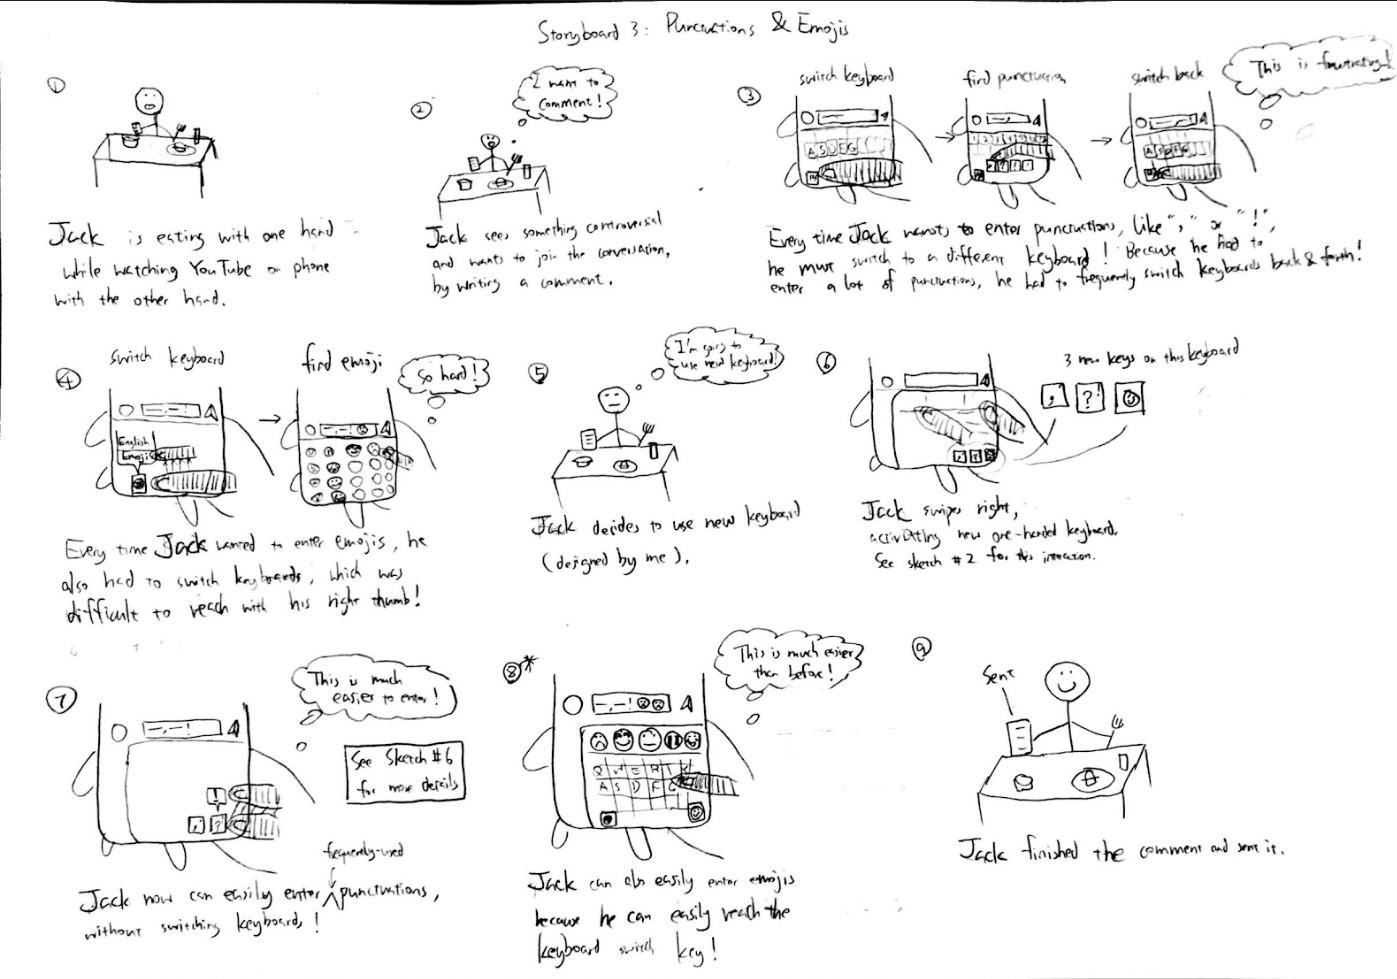 Storyboard 3: Punctuations & Emojis
①
Jack is eating with one hand
while watching YouTube on phone
with the other hand.
②
I want to
comment!
Jack sees something controversial
and wants to join the conversation,
by writing a comment.
③
switch keyboard
find punctuation
switch back
This is frustrating!
A S D E G
Every time Jack wants to enter punctuations, like "," or "!",
he must switch to a different keyboard! Because he had to
enter a lot of punctuations, he had to frequently switch keyboards back & forth!
④
switch keyboard
find emoji
So hard!
English
Emoji
Every time Jack wanted to enter emojis, he
also had to switch keyboards, which was
difficult to reach with his right thumb!
⑤
I'm going to
use new keyboard!
Jack decides to use new keyboard
(designed by me).
⑥
3 new keys on this keyboard
, ?
Jack swipes right,
activating new one-handed keyboard.
See sketch #2 for this interaction.
⑦
This is much
easier to enter!
See Sketch #6
for more details
!
, ?
frequently-used
Jack now can easily enter punctuations,
without switching keyboards!
⑧*
This is much easier
than before!
Q W E R T Y
A S D F G
Jack can also easily enter emojis
because he can easily reach the
keyboard switch key!
⑨
Sent
Jack finished the comment and sent it.